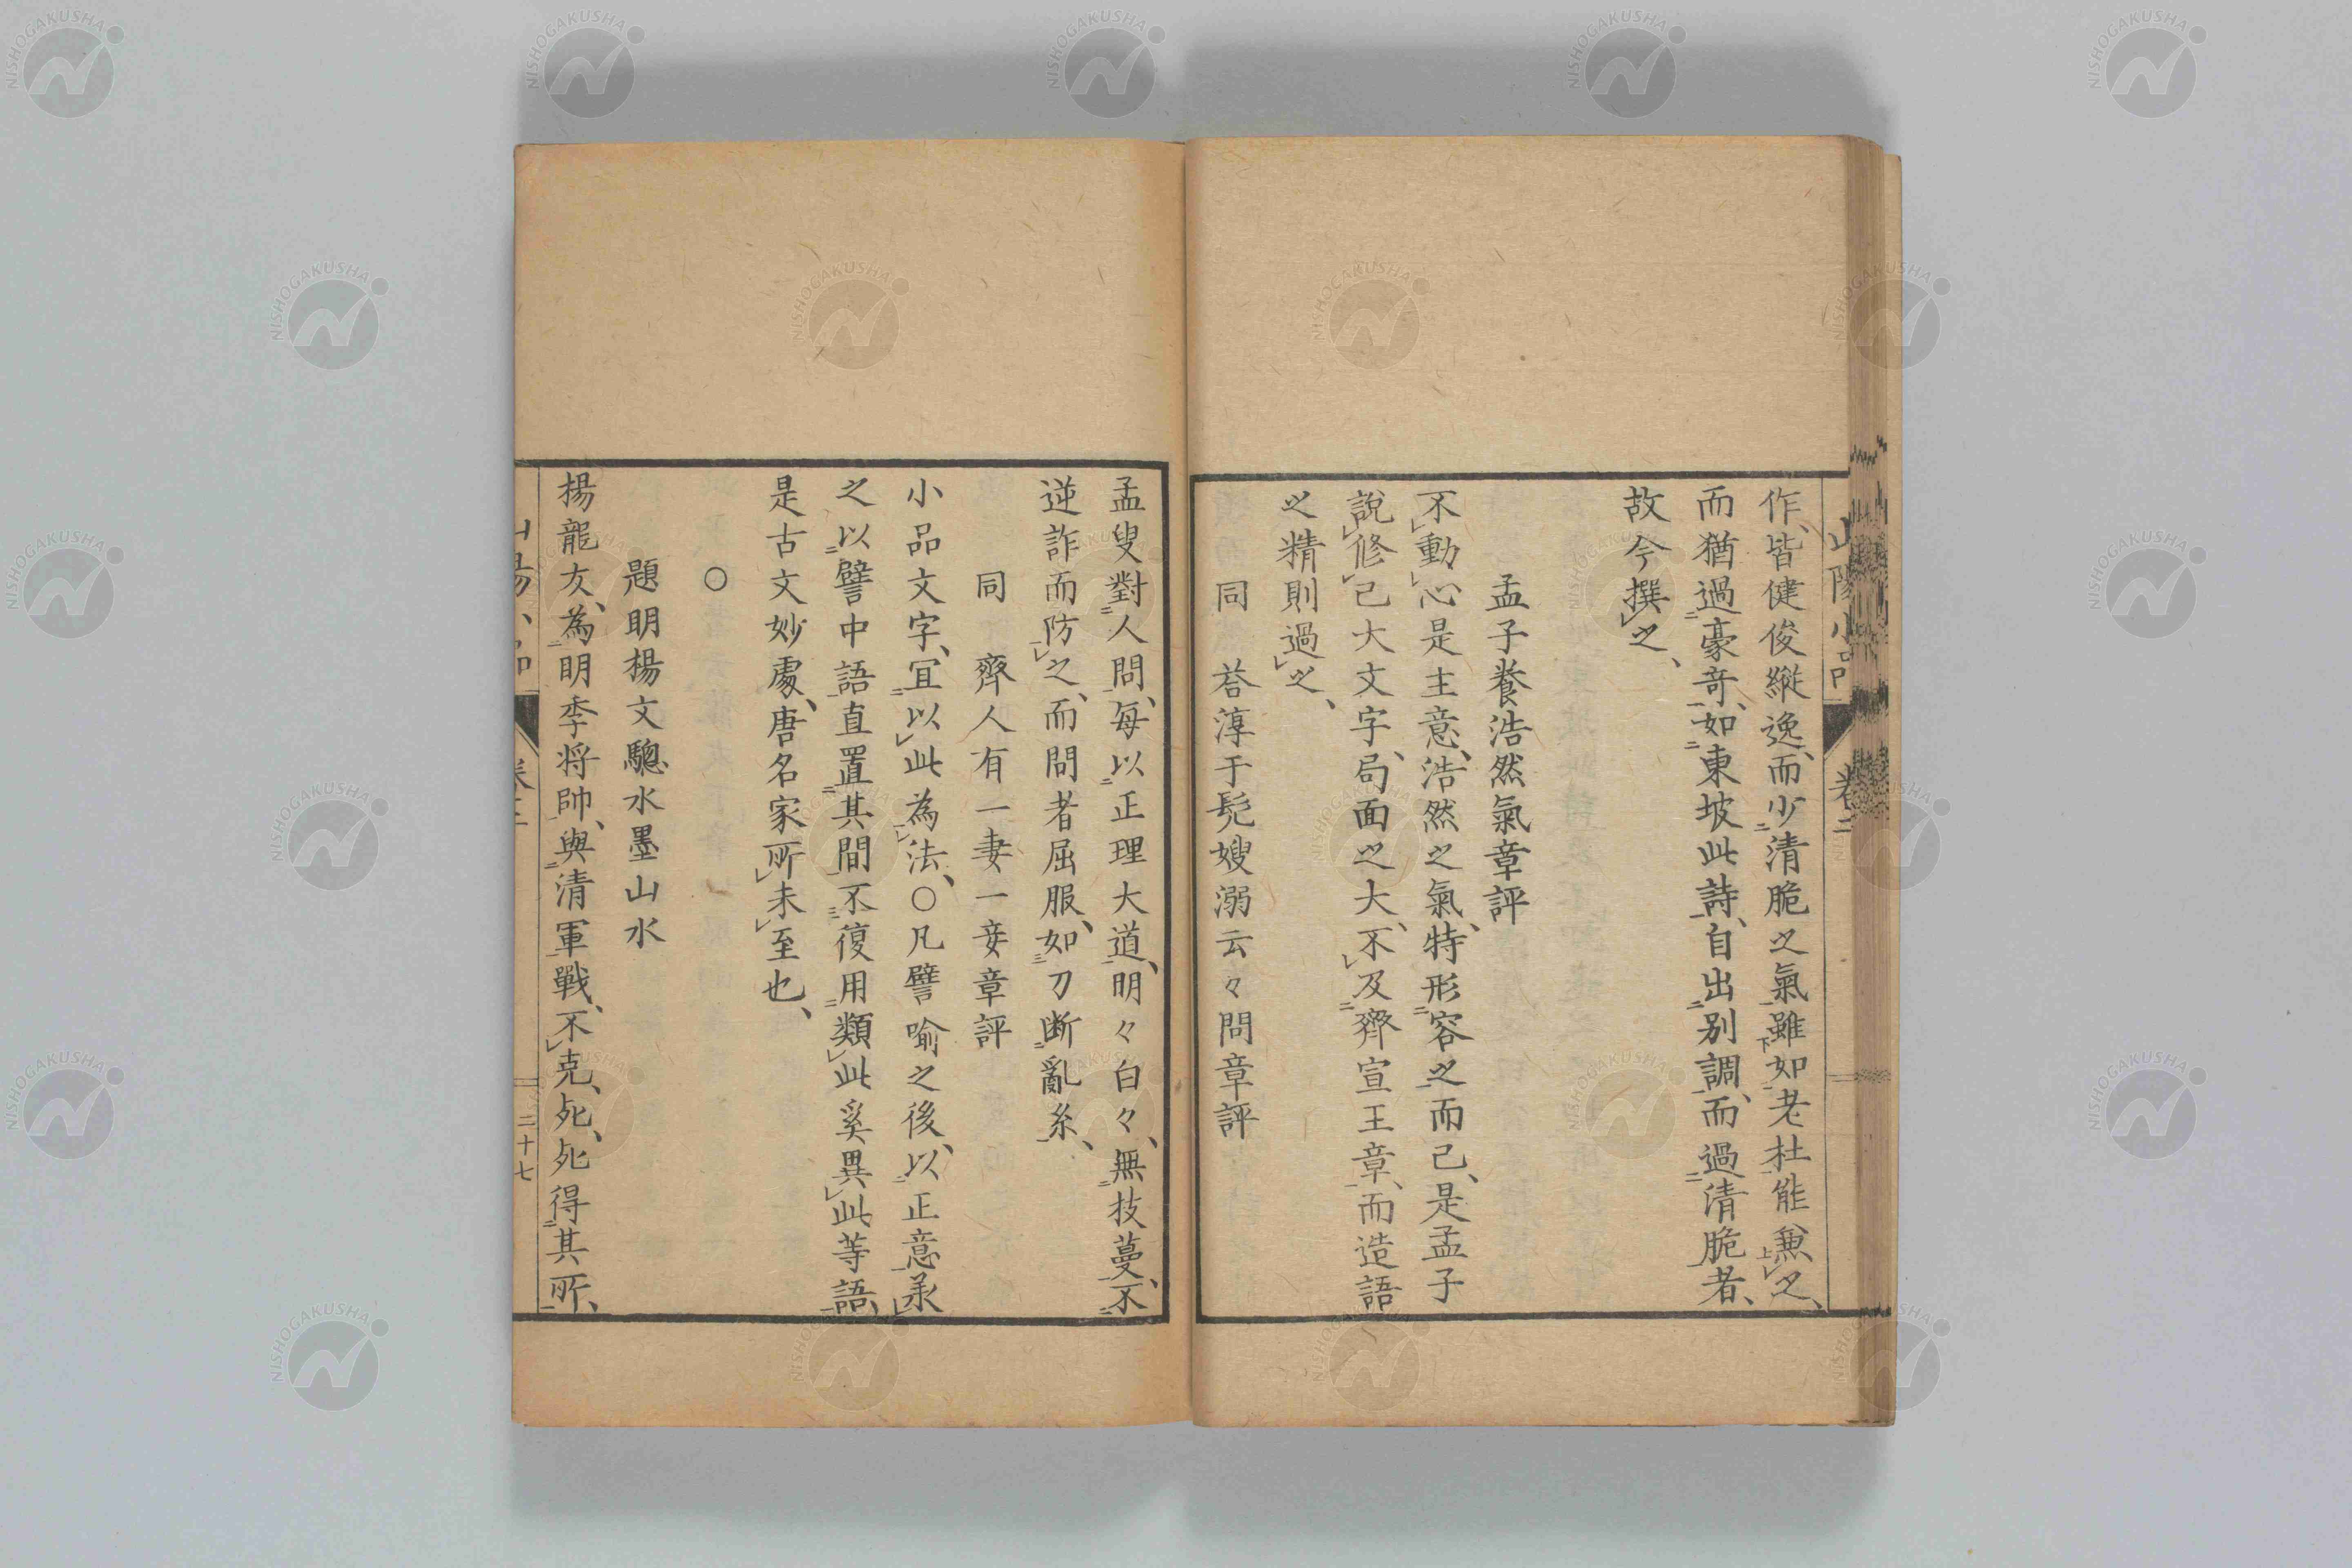 作、皆健俊縱逸、而少清脆之氣雖如老杜能兼之、
而猶過豪奇、如東坡此詩、自出別調、而過清脆者、
故今撰之、
孟子養浩然氣章評
不動心是主意、浩然之氣、特形容之而已、是孟子
說修己大文字、局面之大、不及齊宣王章、而造語
之精則過之、
同 荅淳于髡嫂溺云々問章評
孟叟對人問、每以正理大道、明々白々、無技蔓、不
逆詐而防之、而問者屈服、如刀断亂糸、
同 齊人有一妻一妾章評
小品文字、宜以此為法、○凡譬喻之後、以正意承
之以譬中語直置其間不復用類此奚異此等語、
是古文妙處、唐名家所未至也、
○
題明楊文驄水墨山水
揚龍友、為明季将帥、與清軍戰、不克、死、死得其所、
山陽小品 卷二 二十七
NISHOGAKUSHA